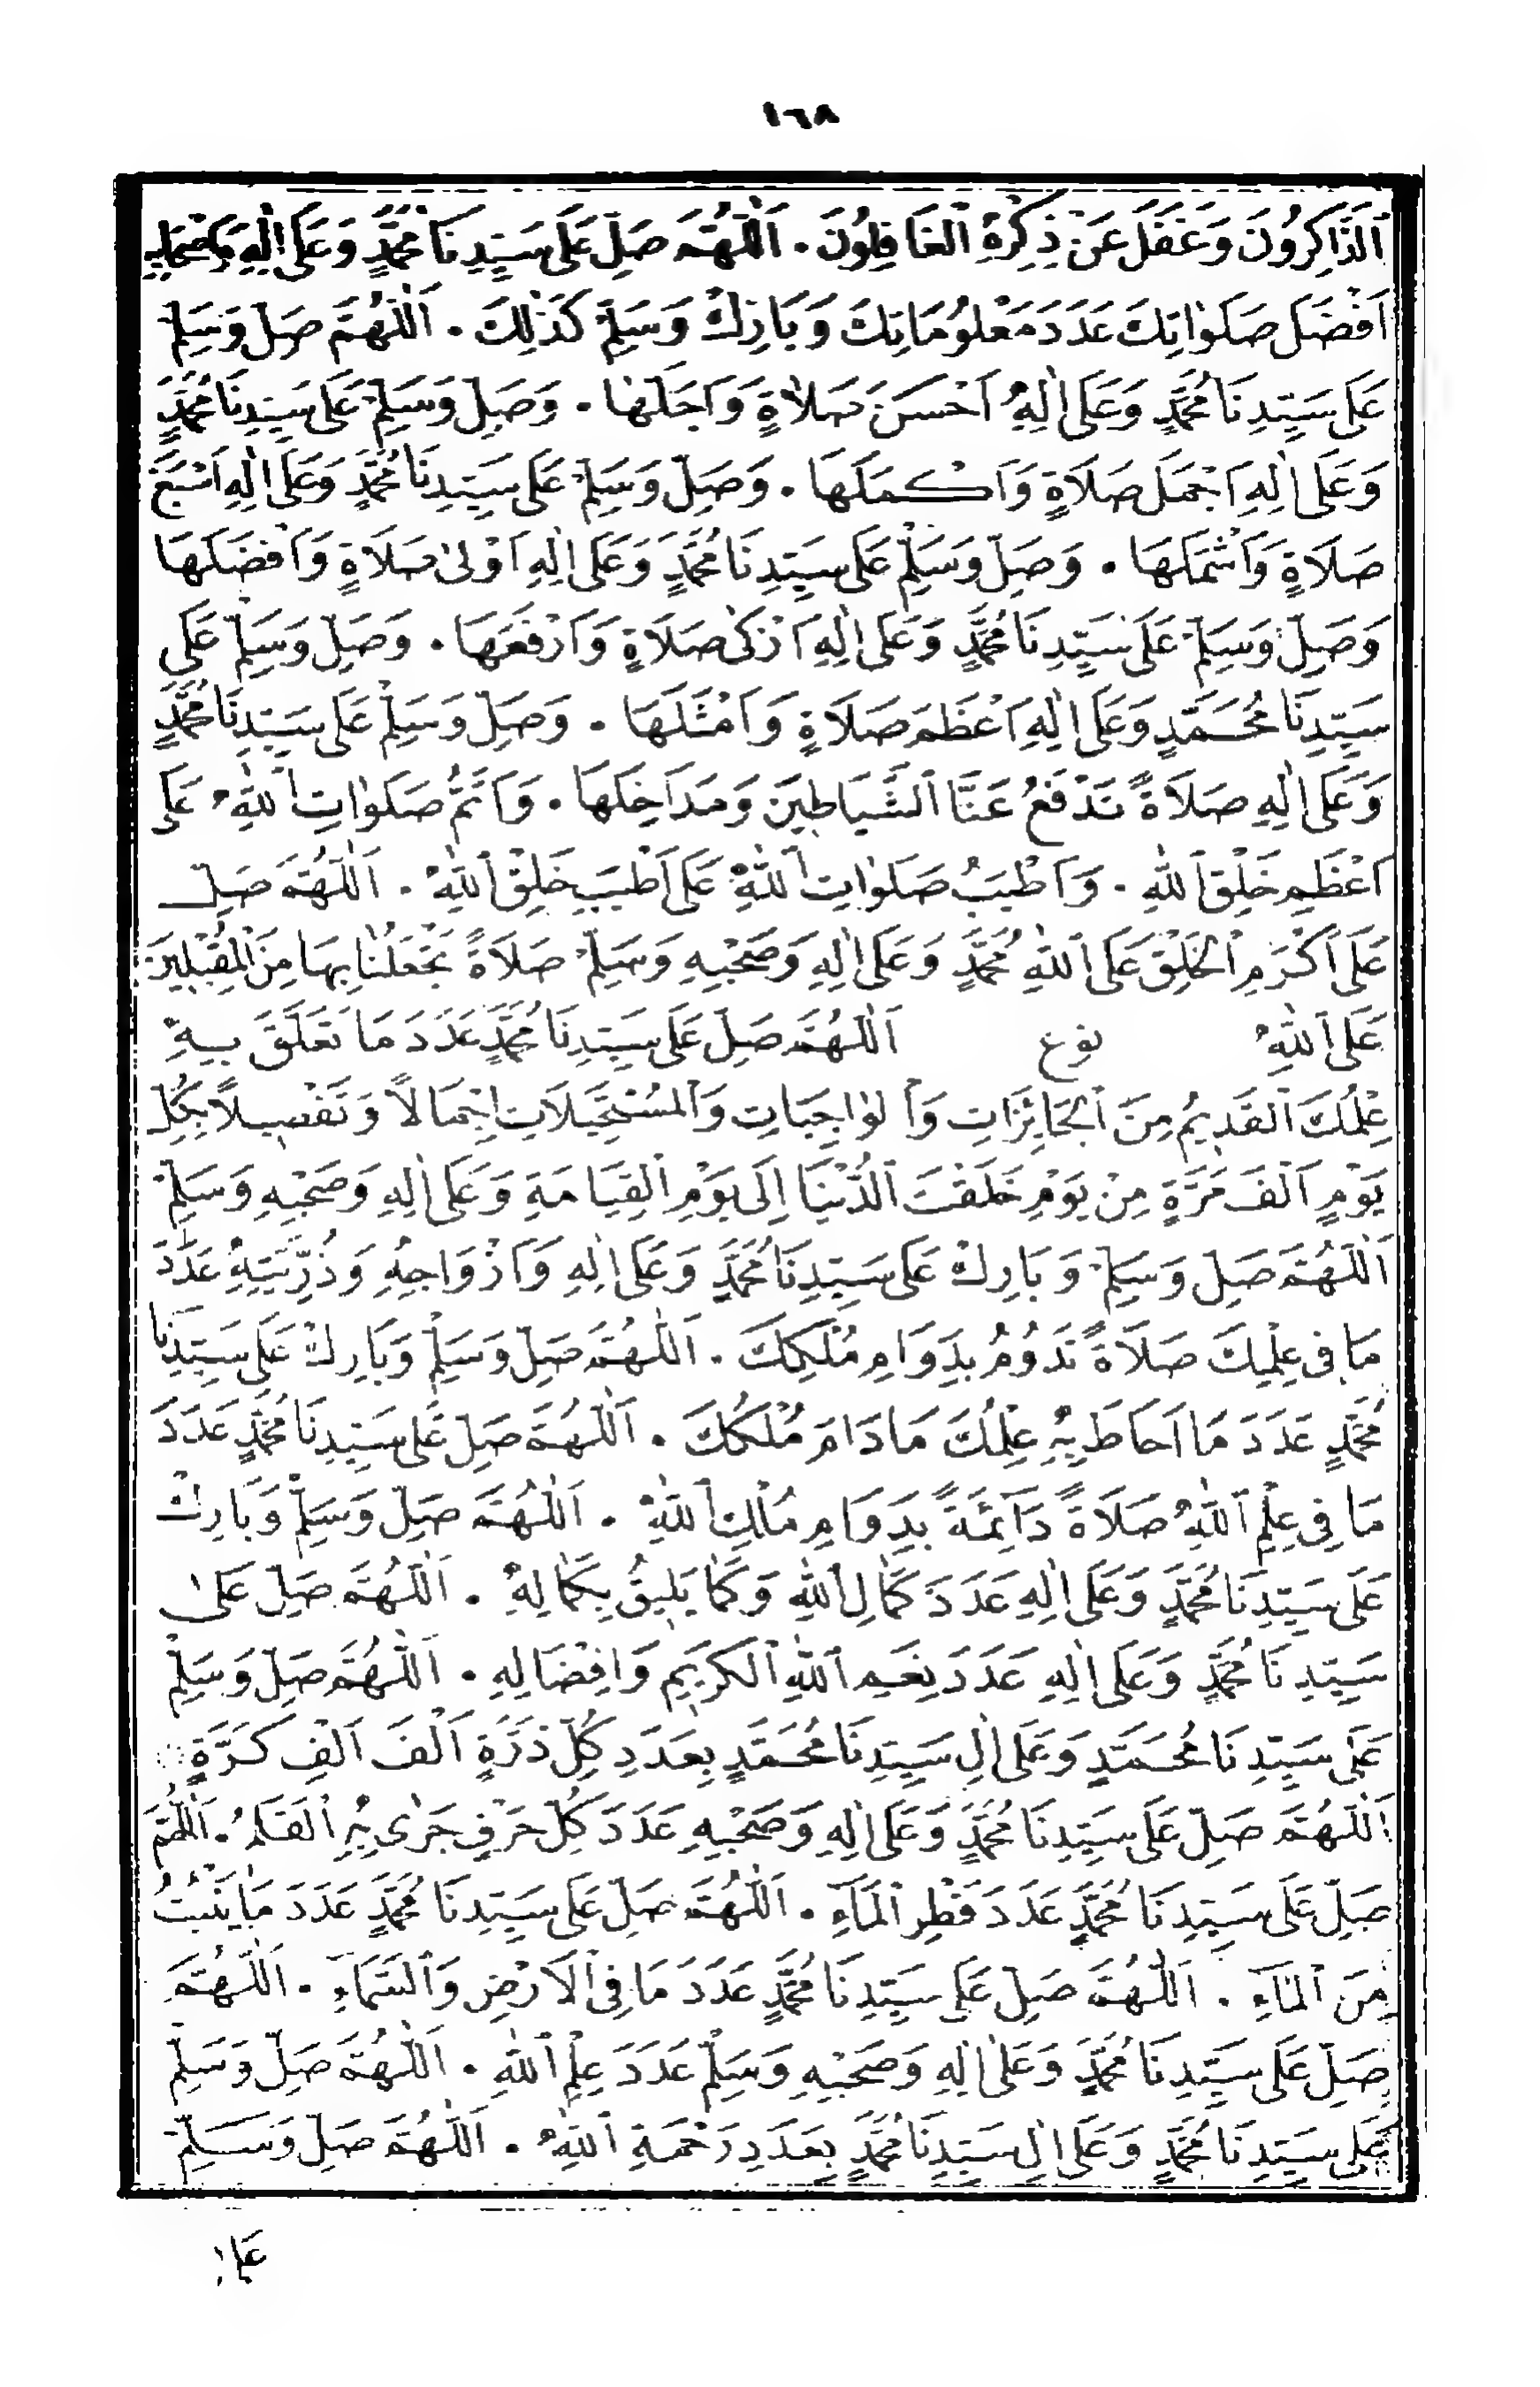 ١٦٨
اَلذَّاكِرُونَ وَغَفَلَ عَنْ ذِكْرِهِ الْغَافِلُونَ . اَللّٰهُمَّ صَلِّ عَلَى سَيِّدِنَا مُحَمَّدٍ وَعَلَى اٰلِهِ وَصَحْبِهِ
اَفْضَلَ صَلَوَاتِكَ عَدَدَ مَعْلُومَاتِكَ وَبَارِكْ وَسَلِّمْ كَذٰلِكَ . اَللّٰهُمَّ صَلِّ وَسَلِّمْ
عَلَى سَيِّدِنَا مُحَمَّدٍ وَعَلَى اٰلِهِ اَحْسَنَ صَلَاةٍ وَاَجَلَّهَا . وَصَلِّ وَسَلِّمْ عَلَى سَيِّدِنَا مُحَمَّدٍ
وَعَلَى اٰلِهِ اَجْمَلَ صَلَاةٍ وَاَكْمَلَهَا . وَصَلِّ وَسَلِّمْ عَلَى سَيِّدِنَا مُحَمَّدٍ وَعَلَى اٰلِهِ اَسْبَغَ
صَلَاةٍ وَاَشْمَلَهَا . وَصَلِّ وَسَلِّمْ عَلَى سَيِّدِنَا مُحَمَّدٍ وَعَلَى اٰلِهِ اَوْلٰى صَلَاةٍ وَاَفْضَلَهَا
وَصَلِّ وَسَلِّمْ عَلَى سَيِّدِنَا مُحَمَّدٍ وَعَلَى اٰلِهِ اَزْكٰى صَلَاةٍ وَاَرْفَعَهَا . وَصَلِّ وَسَلِّمْ عَلَى
سَيِّدِنَا مُحَمَّدٍ وَعَلَى اٰلِهِ اَعْظَمَ صَلَاةٍ وَاَمْثَلَهَا . وَصَلِّ وَسَلِّمْ عَلَى سَيِّدِنَا مُحَمَّدٍ
وَعَلَى اٰلِهِ صَلَاةً تَدْفَعُ عَنَّا الشَّيَاطِينَ وَمَدَاخِلَهَا . وَاَتَمُّ صَلَوَاتِ اللّٰهِ عَلَى
اَعْظَمِ خَلْقِ اللّٰهِ . وَاَطْيَبُ صَلَوَاتِ اللّٰهِ عَلَى اَطْيَبِ خَلْقِ اللّٰهِ . اَللّٰهُمَّ صَلِّ
عَلَى اَكْرَمِ الْخَلْقِ عَلَى اللّٰهِ مُحَمَّدٍ وَعَلَى اٰلِهِ وَصَحْبِهِ وَسَلِّمْ صَلَاةً تَجْعَلُنَا بِهَا مِنَ الْمُقْبِلِينَ
عَلَى اللّٰهِ نوع اَللّٰهُمَّ صَلِّ عَلَى سَيِّدِنَا مُحَمَّدٍ عَدَدَ مَا تَعَلَّقَ بِهِ
عِلْمُكَ الْقَدِيمُ مِنَ الْجَائِزَاتِ وَالْوَاجِبَاتِ وَالْمُسْتَحِيلَاتِ اِجْمَالًا وَتَفْصِيلًا بِكُلِّ
يَوْمٍ اَلْفَ مَرَّةٍ مِنْ يَوْمِ خَلَقْتَ الدُّنْيَا اِلَى يَوْمِ الْقِيَامَةِ وَعَلَى اٰلِهِ وَصَحْبِهِ وَسَلِّمْ
اَللّٰهُمَّ صَلِّ وَسَلِّمْ وَبَارِكْ عَلَى سَيِّدِنَا مُحَمَّدٍ وَعَلَى اٰلِهِ وَاَزْوَاجِهِ وَذُرِّيَّتِهِ عَدَدَ
مَا فِي عِلْمِكَ صَلَاةً تَدُومُ بِدَوَامِ مُلْكِكَ . اَللّٰهُمَّ صَلِّ وَسَلِّمْ وَبَارِكْ عَلَى سَيِّدِنَا
مُحَمَّدٍ عَدَدَ مَا اَحَاطَ بِهِ عِلْمُكَ مَا دَامَ مُلْكُكَ . اَللّٰهُمَّ صَلِّ عَلَى سَيِّدِنَا مُحَمَّدٍ عَدَدَ
مَا فِي عِلْمِ اللّٰهِ صَلَاةً دَائِمَةً بِدَوَامِ مُلْكِ اللّٰهِ . اَللّٰهُمَّ صَلِّ وَسَلِّمْ وَبَارِكْ
عَلَى سَيِّدِنَا مُحَمَّدٍ وَعَلَى اٰلِهِ عَدَدَ كَمَالِ اللّٰهِ وَكَمَا يَلِيقُ بِكَمَالِهِ . اَللّٰهُمَّ صَلِّ عَلٰى
سَيِّدِنَا مُحَمَّدٍ وَعَلَى اٰلِهِ عَدَدَ نِعَمِ اللّٰهِ الْكَرِيمِ وَاِفْضَالِهِ . اَللّٰهُمَّ صَلِّ وَسَلِّمْ
عَلَى سَيِّدِنَا مُحَمَّدٍ وَعَلَى اٰلِ سَيِّدِنَا مُحَمَّدٍ بِعَدَدِ كُلِّ ذَرَّةٍ اَلْفَ اَلْفِ كَرَّةٍ
اَللّٰهُمَّ صَلِّ عَلَى سَيِّدِنَا مُحَمَّدٍ وَعَلَى اٰلِهِ وَصَحْبِهِ عَدَدَ كُلِّ حَرْفٍ جَرٰى بِهِ الْقَلَمُ . اَللّٰهُمَّ
صَلِّ عَلَى سَيِّدِنَا مُحَمَّدٍ عَدَدَ قَطْرِ الْمَآءِ . اَللّٰهُمَّ صَلِّ عَلَى سَيِّدِنَا مُحَمَّدٍ عَدَدَ مَا يَنْبُتُ
مِنَ الْمَآءِ . اَللّٰهُمَّ صَلِّ عَلَى سَيِّدِنَا مُحَمَّدٍ عَدَدَ مَا فِي الْاَرْضِ وَالسَّمَآءِ . اَللّٰهُمَّ
صَلِّ عَلَى سَيِّدِنَا مُحَمَّدٍ وَعَلٰى اٰلِهِ وَصَحْبِهِ وَسَلِّمْ عَدَدَ عِلْمِ اللّٰهِ . اَللّٰهُمَّ صَلِّ وَسَلِّمْ
عَلَى سَيِّدِنَا مُحَمَّدٍ وَعَلَى اٰلِ سَيِّدِنَا مُحَمَّدٍ بِعَدَدِ رَحْمَةِ اللّٰهِ . اَللّٰهُمَّ صَلِّ وَسَلِّمْ
عَلَى